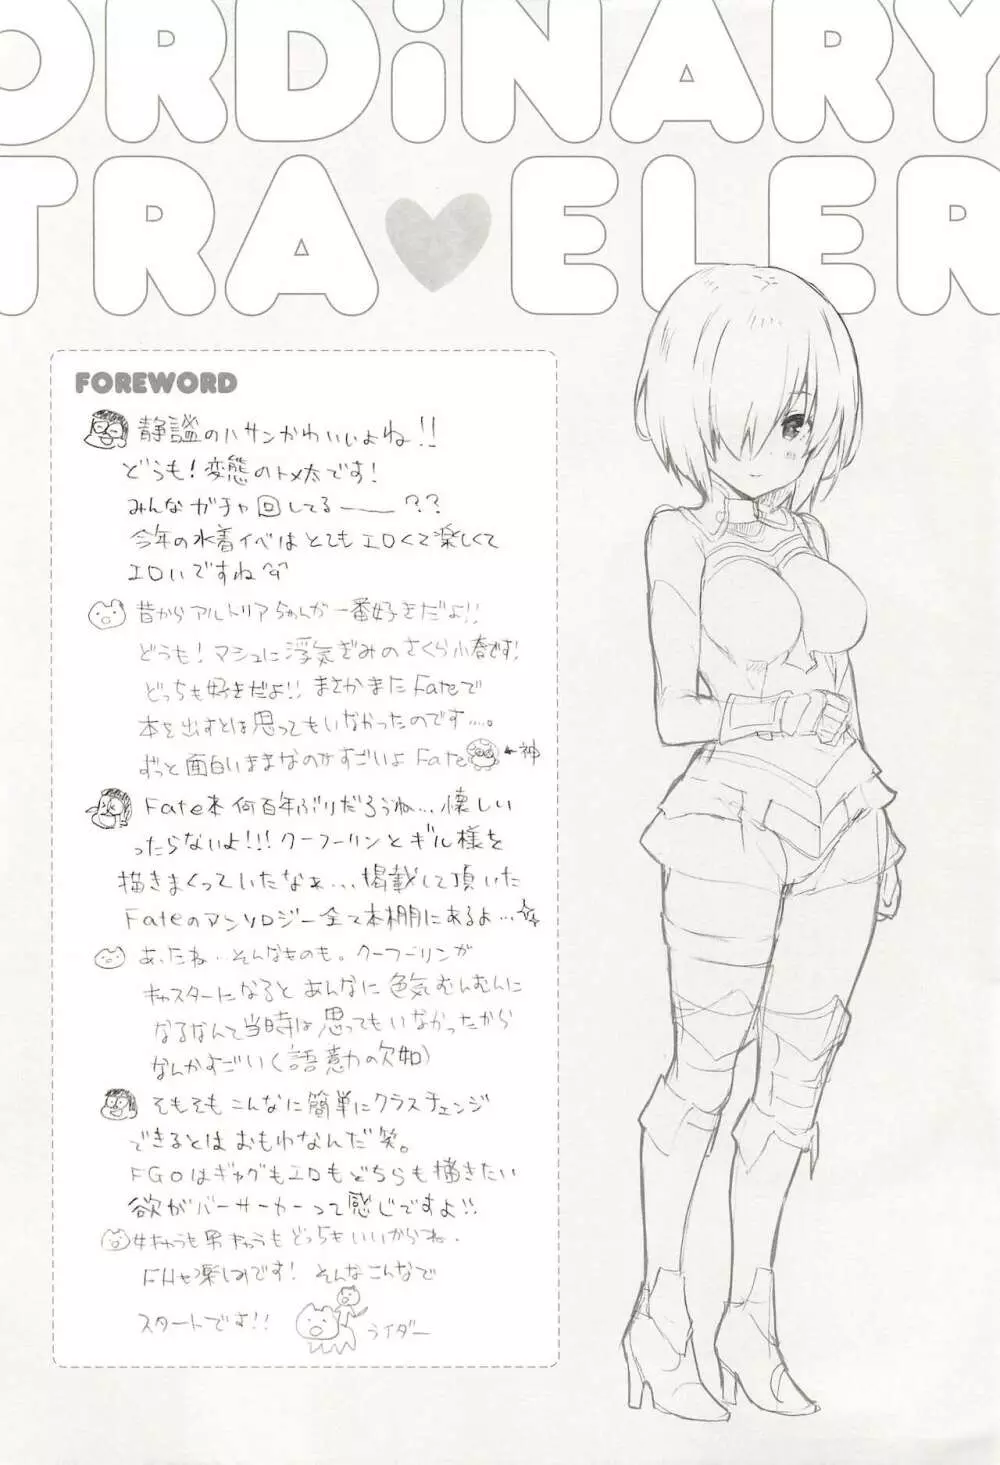 ORDiNARY
TRA♥ELER
FOREWORD
静謐のハサンかわいいよね!!
どうも!変態のトメ太です!
みんなガチャ回してるー??
今年の水着イベはとてもエロくて楽しくて
エロいですね
昔からアルトリアちゃんが一番好きだよ!!
どうも!マシュに浮気ぎみのさくら小春です!
どっちも好きだよ!!まさかまたFateで
本を出すとは思ってもいなかったのです....。
ずっと面白いままなのがすごいよFate ←神
Fate本何百年ぶりだろうね...懐しい
ったらないよ!!!クーフーリンとギル様を
描きまくっていたなぁ...掲載して頂いた
Fateのアンソロジー全て本棚にあるよ...☆
あったね...そんなものも。クーフーリンが
キャスターになるとあんなに色気むんむんに
なるなんて当時は思ってもいなかったから
なんかすごい(語意力の欠如)
そもそもこんなに簡単にクラスチェンジ
できるとはおもわなんだ笑。
FGOはギャグもエロもどちらも描きたい
欲がバーサーカーって感じですよ!!
女キャラも男キャラもどっちもいいからね.
楽しみです!そんなこんなで
スタートです!!
ライダー